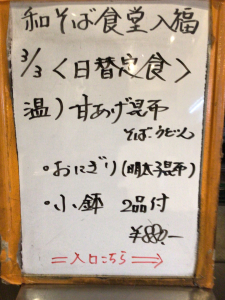 和そば食堂入福
3/3 <日替定食>
温) 甘あげ昆布
そば・うどん
・おにぎり(明太昆布)
・小鉢 2品付
¥880.-
=入口こちら⇒